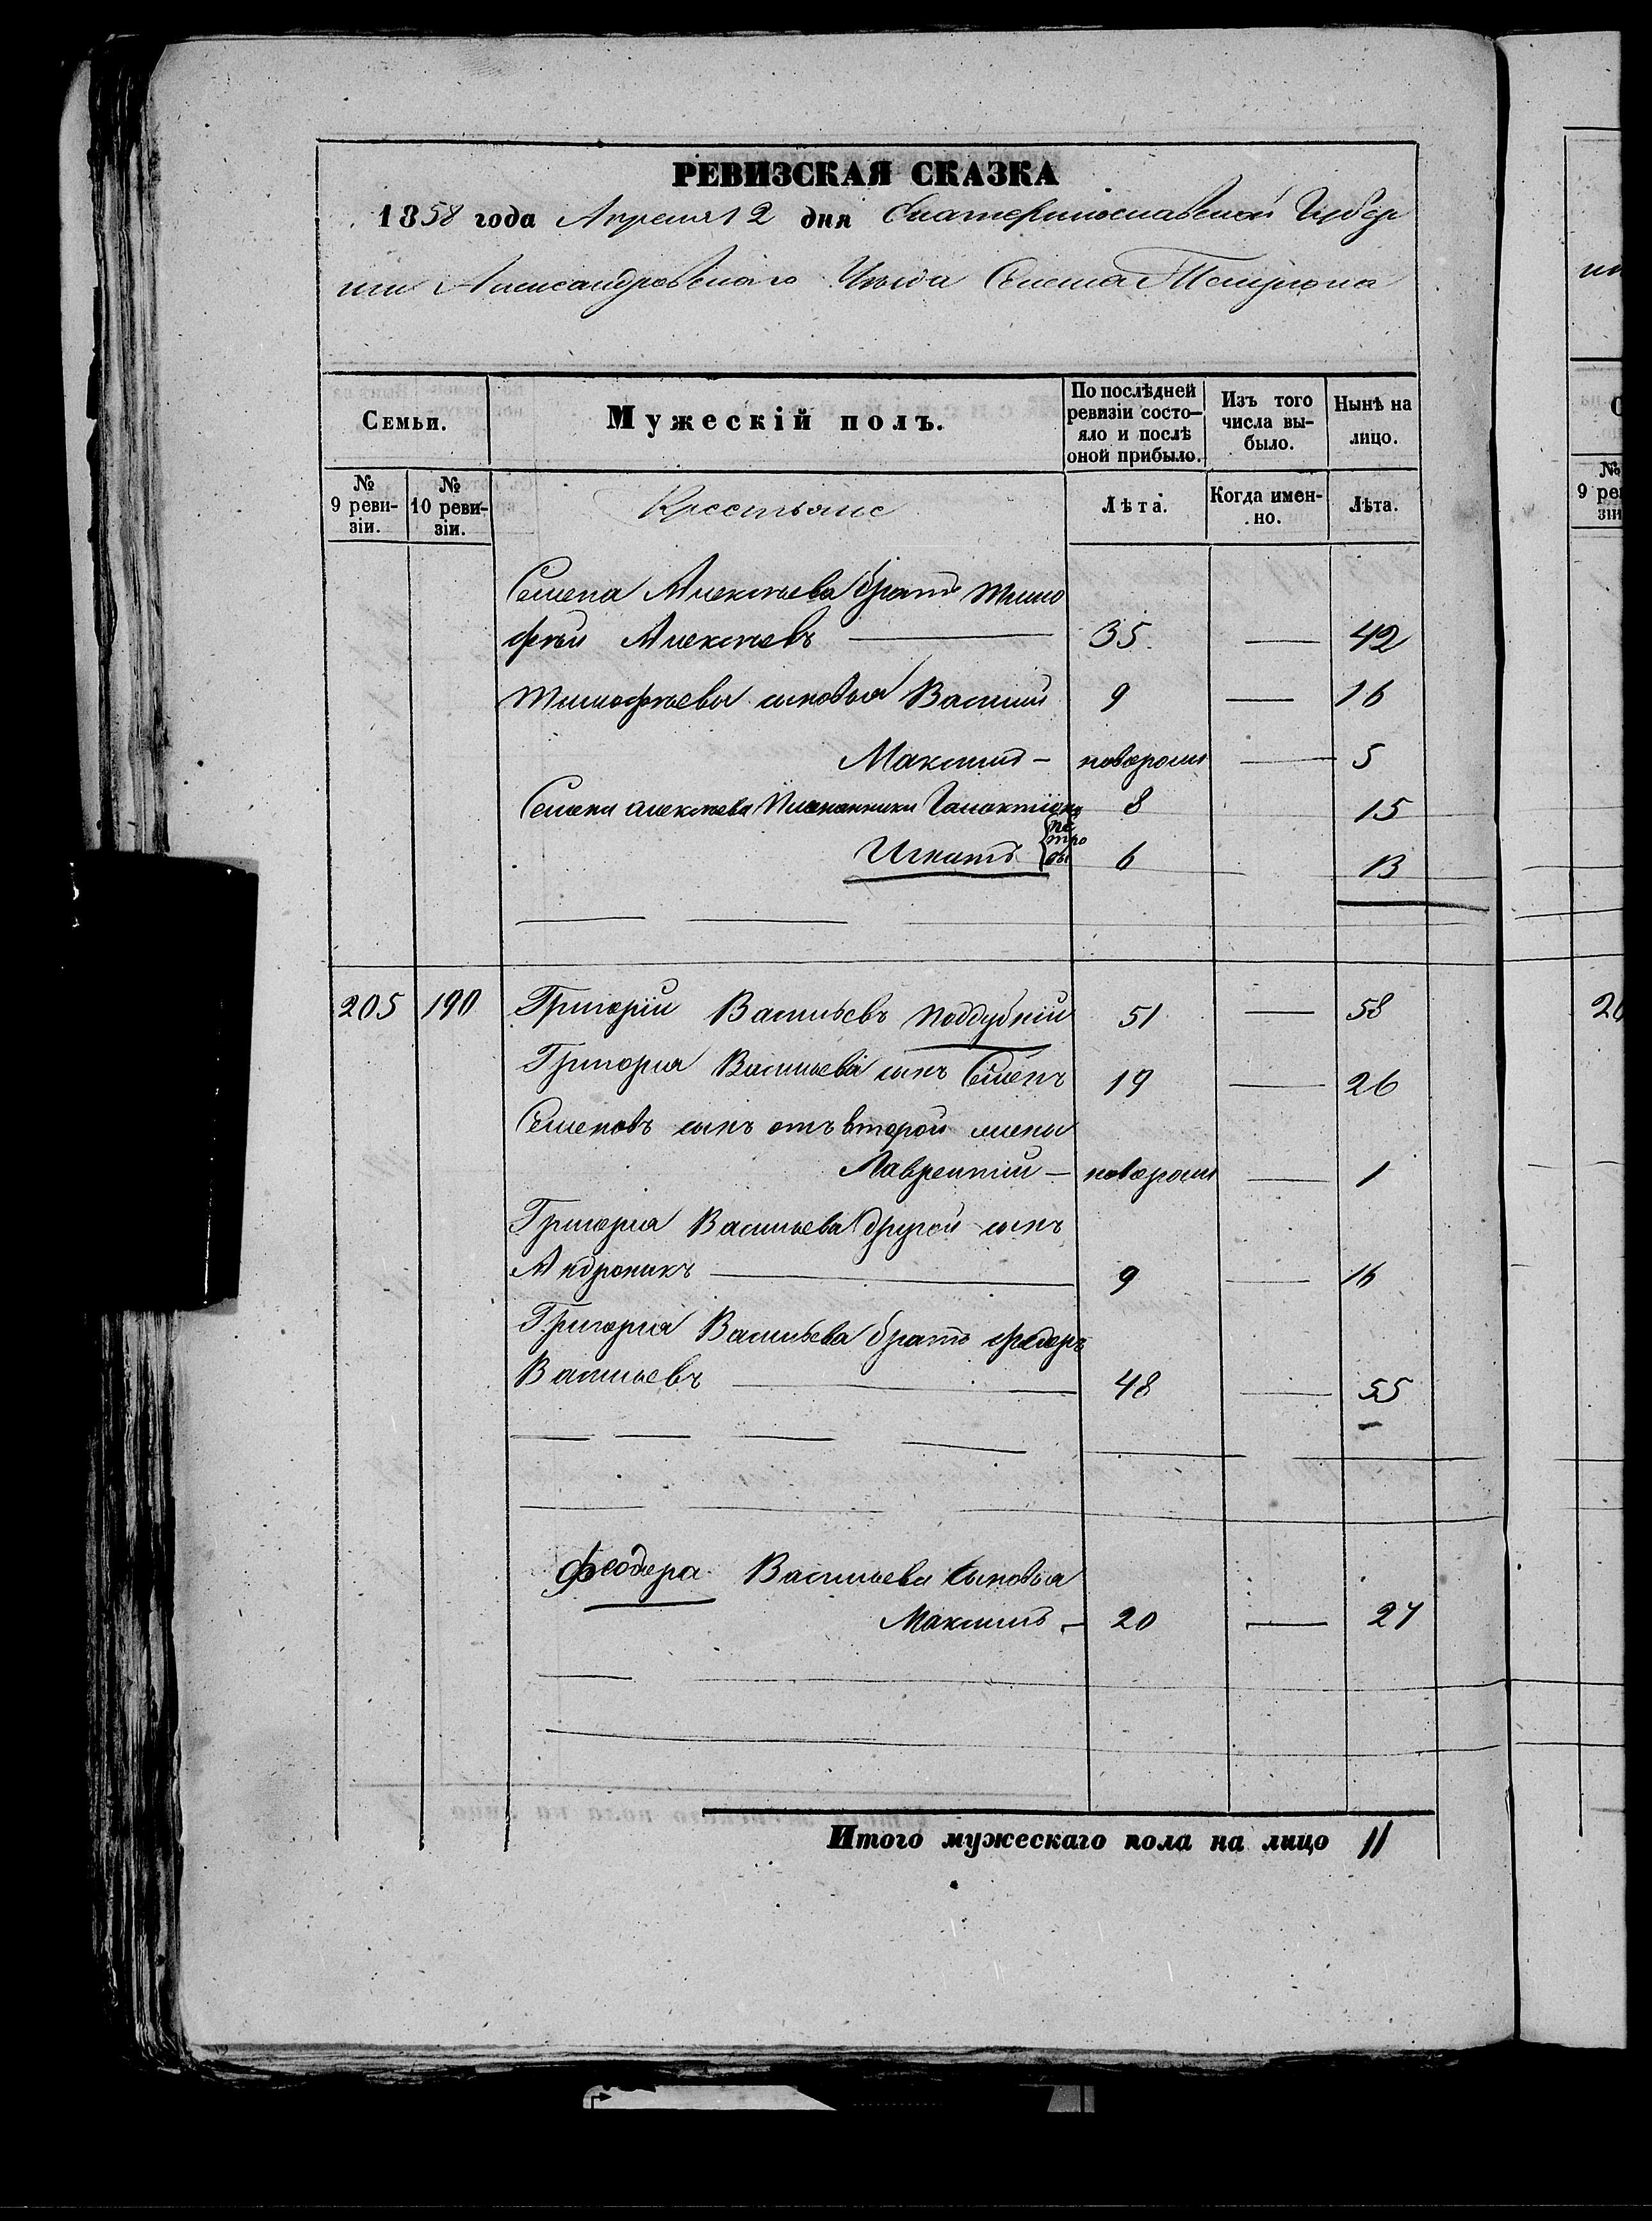 РЕВИЗСКАЯ СКАЗКА
1858 года Апреля 12 дня Екатеринославской Губер
нии Александровскаго Уезда Селенiя Покровскаго
Семьи.
Мужескiй полъ.
По послѣдней ревизiи состо-яло и послѣ оной прибыло.
Изъ того числа вы-было.
Нынѣ на лицо.
№ 9 реви-зiи.
№ 10 реви-зiи.
Крестьяне
Лѣта.
Когда имен-но.
Лѣта.
Семена Алексѣева братъ Тимо
фѣй Алексѣевъ — 35. — 42
Тимофѣевы сыновья Василiй 9 — 16
Максимъ — новорожд — 5
Семена Алексѣева племянники Галактiонъ 8 15
Игнатъ Петровы 6 13
205 190 Григорiй Васильевъ Поддубнiй 51 — 58
Григорiя Васильева сынъ Семенъ 19 — 26
Семеновъ сынъ отъ второй жены
Лаврентiй — новорожд — 1
Григорiя Васильева другой сынъ
Андроникъ — 9 — 16
Григорiя Васильева братъ Федоръ
Васильевъ — 48 — 55
Феодора Васильева сыновья
Максимъ — 20 — 27
Итого мужескаго пола на лицо 11
№
9 ре
зiи